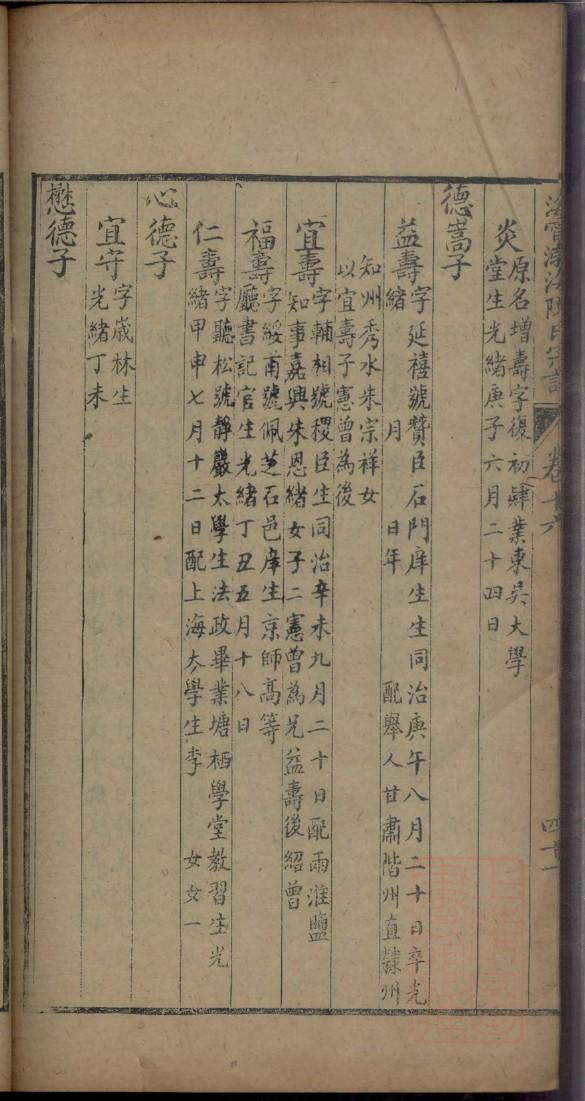 海寧渤海陳氏宗譜 卷十六 四十一
炎 原名增壽字復初肄業東吳大學
堂生光緒庚子六月二十四日
德嵩子
益壽 字延禧號贊臣石門庠生生同治庚午八月二十日卒光
緒 年 月 日配舉人甘肅階州直隸州
知州秀水朱宗祥女
以宜壽子憲曾為後
宜壽 字輔相號稷臣生同治辛未九月二十日配兩淮鹽
知事嘉興朱恩緒女子二憲曾為兄益壽後紹曾
福壽 字綏甫號佩芝石邑庠生京師高等
廳書記官生光緒丁丑五月十八日
仁壽 字聽松號靜嚴太學生法政畢業塘栖學堂教習生光
緒甲申七月十二日配上海太學生李 女女一
心德子
宜守 字歲林生
光緒丁未
懋德子